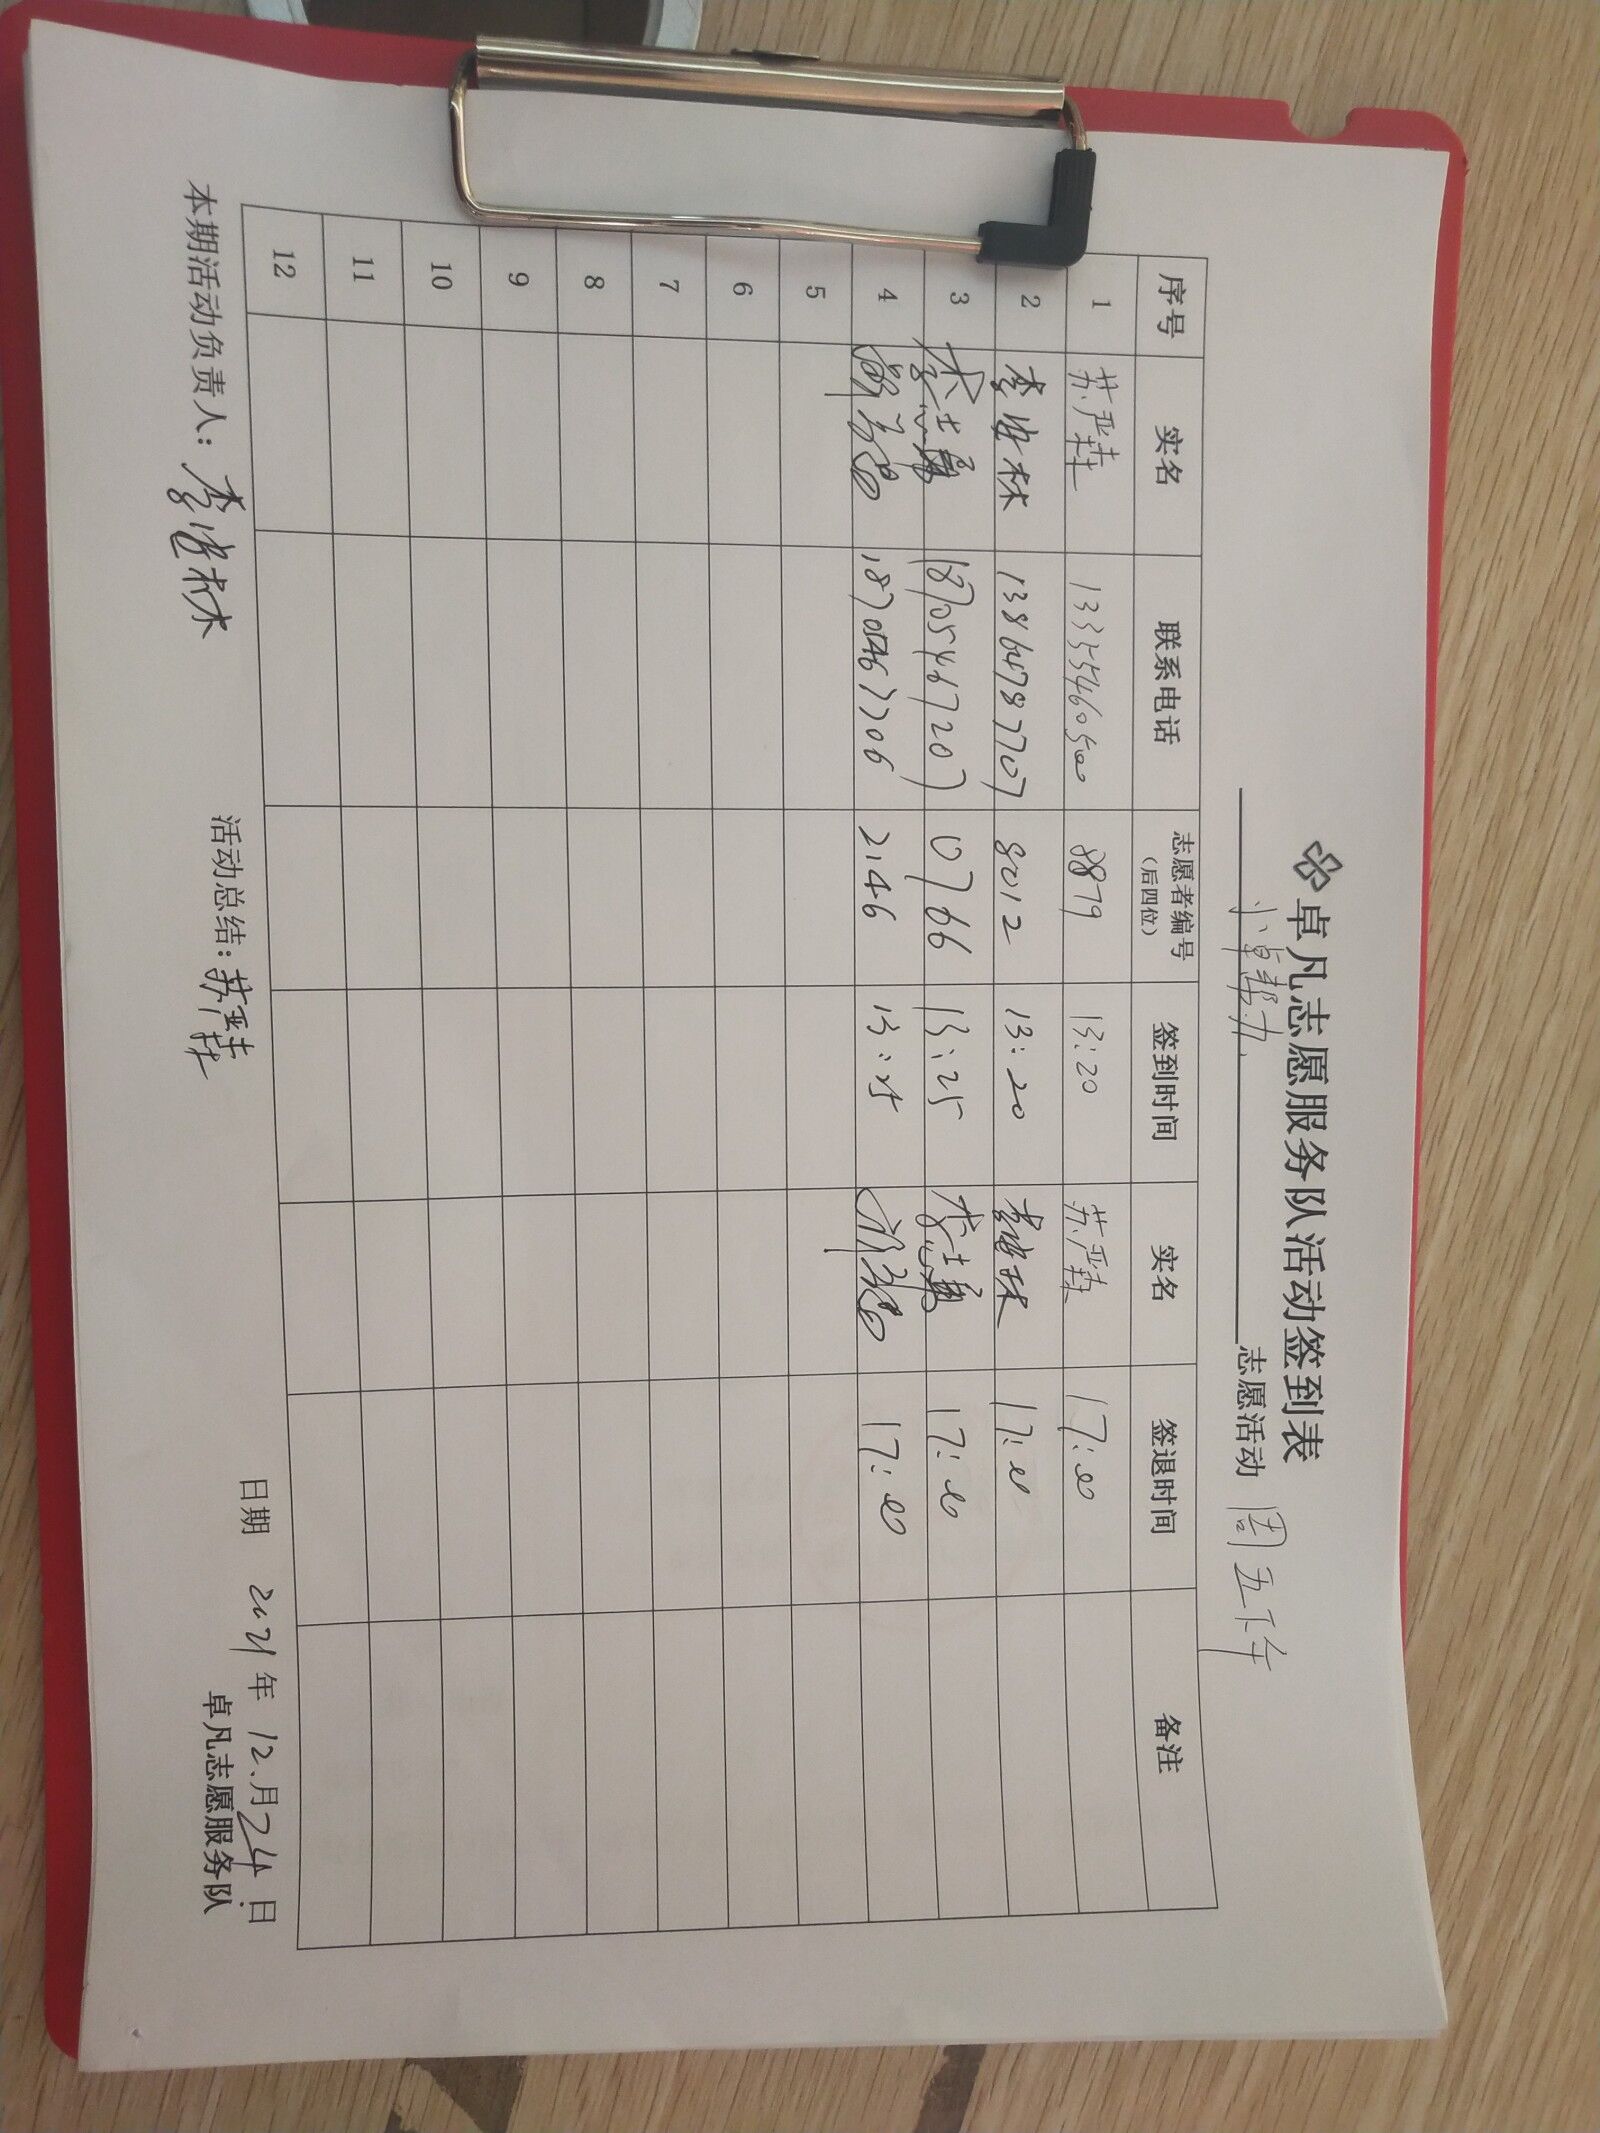 卓凡志愿服务队活动签到表
小卓帮力 志愿活动 周五下午
序号 实名 联系电话 志愿者编号（后四位） 签到时间 实名 签退时间 备注
1 苏严森 13355460500 8879 13:20 苏严森 17:00
2 李 林 13864787707 8012 13:20 李 林 17:00
3 李志勇 18705467207 0766 13:25 李志勇 17:00
4 18705467706 2146 13:25 17:00
5
6
7
8
9
10
11
12
本期活动负责人：李 林 活动总结：苏严森 日期 2021年12.月24日
卓凡志愿服务队